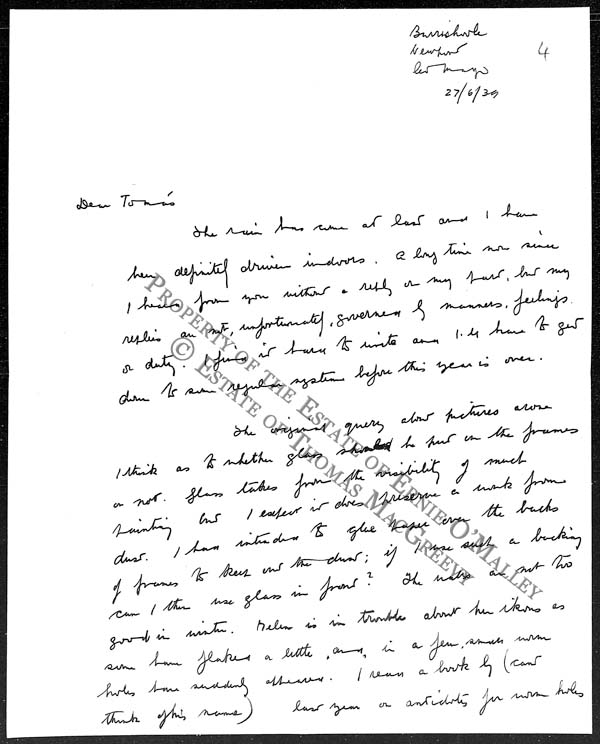 Burrishoole
Newport
Co Mayo
27/6/39
4
Dear Tomás
The rain has come at last and I have
been definitely driven indoors. A long time now since
I heard from you without a reply on my part, but my
replies are not, unfortunately, governed by manners, feelings
or duty. I find it hard to write and I'll have to get
down to some regular system before this year is over.
The original query about pictures arose
I think as to whether glass should be put on the frames
or not. Glass takes from the visibility of much
painting but I expect it does preserve a work from
dust. I had intended to glue paper over the backs
of frames to keep out the dust; if I use such a backing
can I then use glass in front? The walls are not too
good in winter. Helen is in trouble about her ikons as
some have flaked a little, and, in a few, small worm
holes have suddenly appeared. I read a book by (cant
think of his name) last year on antidotes for worm holes
Property of the Estate of Ernie O'Malley
© Estate of Thomas MacGreevy